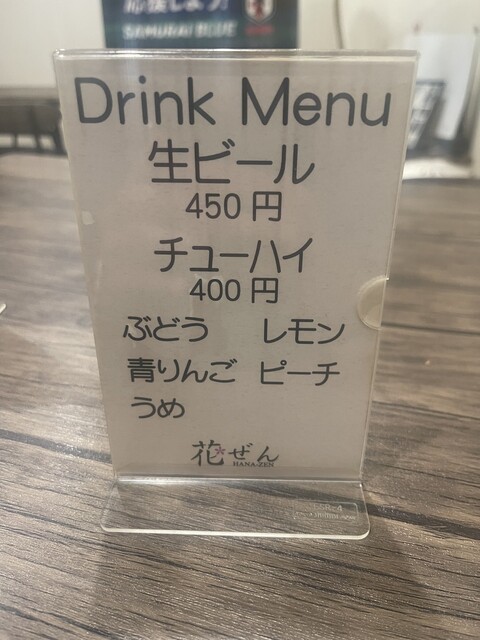 応援しよう
SAMURAI BLUE
Drink Menu
生ビール
450 円
チューハイ
400 円
ぶどう レモン
青りんご ピーチ
うめ
花ぜん
HANA-ZEN